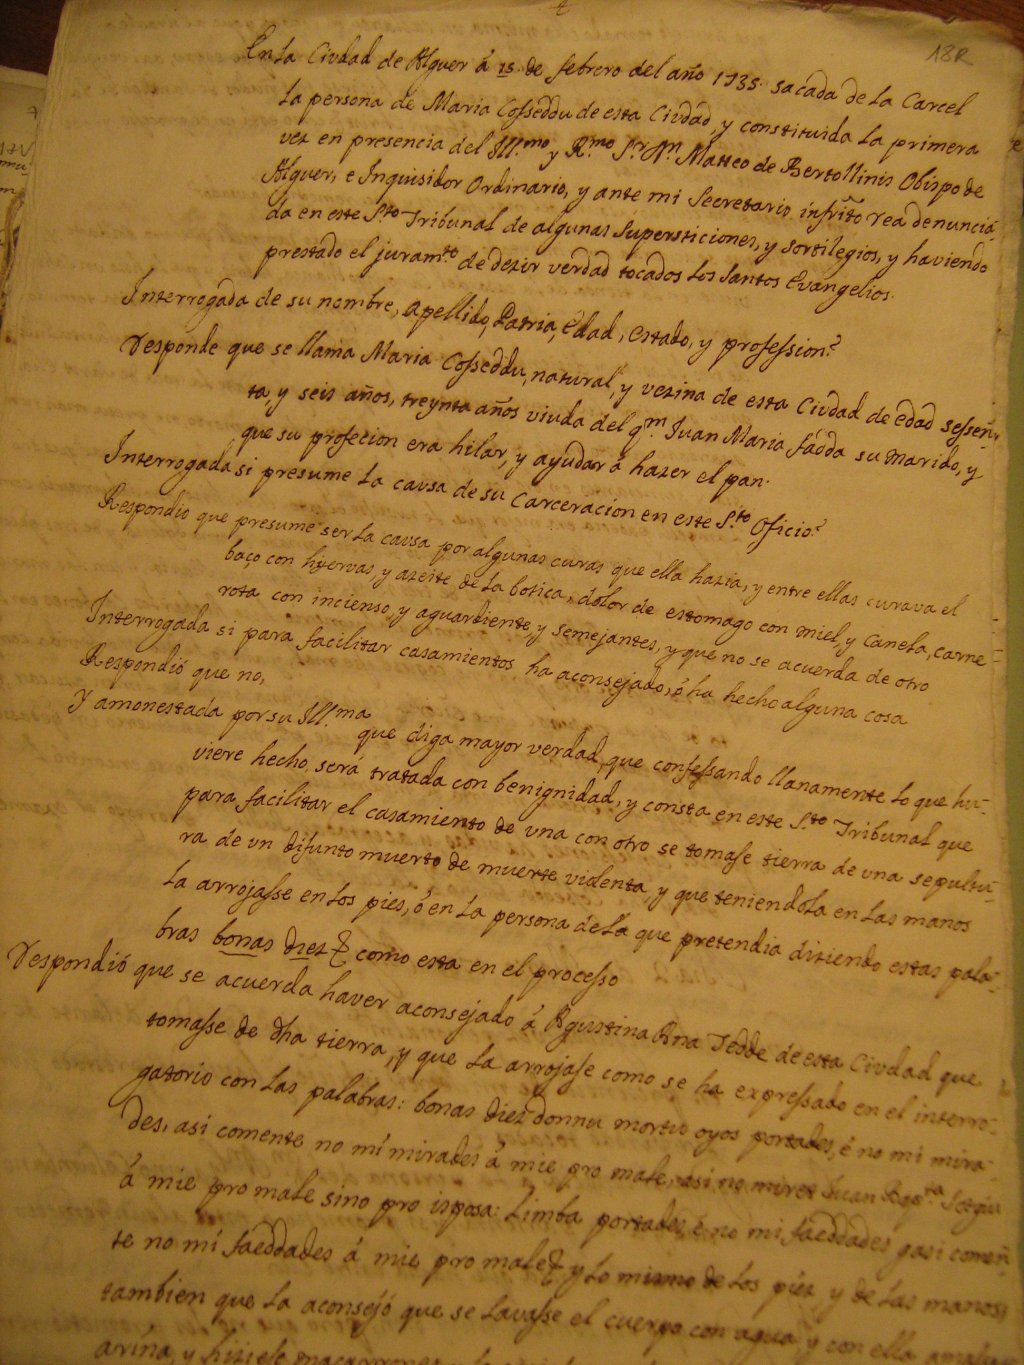 18R
En la Ciudad de Alguer á 15 de febrero del año 1735 sacada de la Carcel
la persona de Maria Cosseddu de esta Ciudad, y constituida la primera
vez en presencia del Ill.mo y R.mo S.r Dn. Matteo de Bertollinis Obispo de
Alguer, e Inquisidor Ordinario, y ante mi Secretario infrito rea denuncia-
da en este S.to Tribunal de algunas supersticiones, y sortilegios, y haviendo
prestado el juram.to de dezir verdad tocados los Santos Evangelios.
Interrogada de su nombre, apellido, Patria, Edad, estado, y profession?
Responde que se llama Maria Cosseddu, natural, y vezina de esta Ciudad de edad sessen-
ta, y seis años, treynta años viuda del q.m Juan Maria fadda su marido, y
que su profecion era hilar, y ayudar á hazer el pan.
Interrogada si presume la causa de su Carceracion en este S.to Oficio?
Respondio que presume ser la causa por algunas curas que ella hazia, y entre ellas curava el
baço con hyervas, y azeite de la botica, dolor de estomago con miel, y Canela, carne
rota con incienso, y aguardiente, y semejantes, y que no se acuerda de otro
Interrogada si para facilitar casamientos ha aconsejado, ó ha hecho alguna cosa
Respondió que no,
Y amonestada por su Ill.ma que diga mayor verdad, que confessando llanamente lo que hu-
viere hecho, será tratada con benignidad, y consta en este S.to Tribunal que
para facilitar el casamiento de una con otro se tomasse tierra de una sepultu-
ra de un difunto muerto de muerte violenta, y que teniendola en las manos
la arrojasse en los pies, ó en la persona de la que pretendia diziendo estas pala-
bras bonas diez & como esta en el processo
Respondió que se acuerda haver aconsejado á Agustina Ana Tedde de esta Ciudad que
tomasse de dha tierra, y que la arrojase como se ha expressado en el interro-
gatorio con las palabras: bonas diez donnu mortu oyos portades, é no mi mira-
des, asi comente no mi mirades á mie pro male, asi no mires Juan Bap.ta
á mie pro male sino pro isposa: Limba portades, é no mi faeddades gasi comen-
te no mi faeddades á mie pro male & y lo mismo de los piez y de las manos,
tambien que la aconsejó que se lavasse el cuerpo con agua, y con ella
arina, y hiziese macarrones